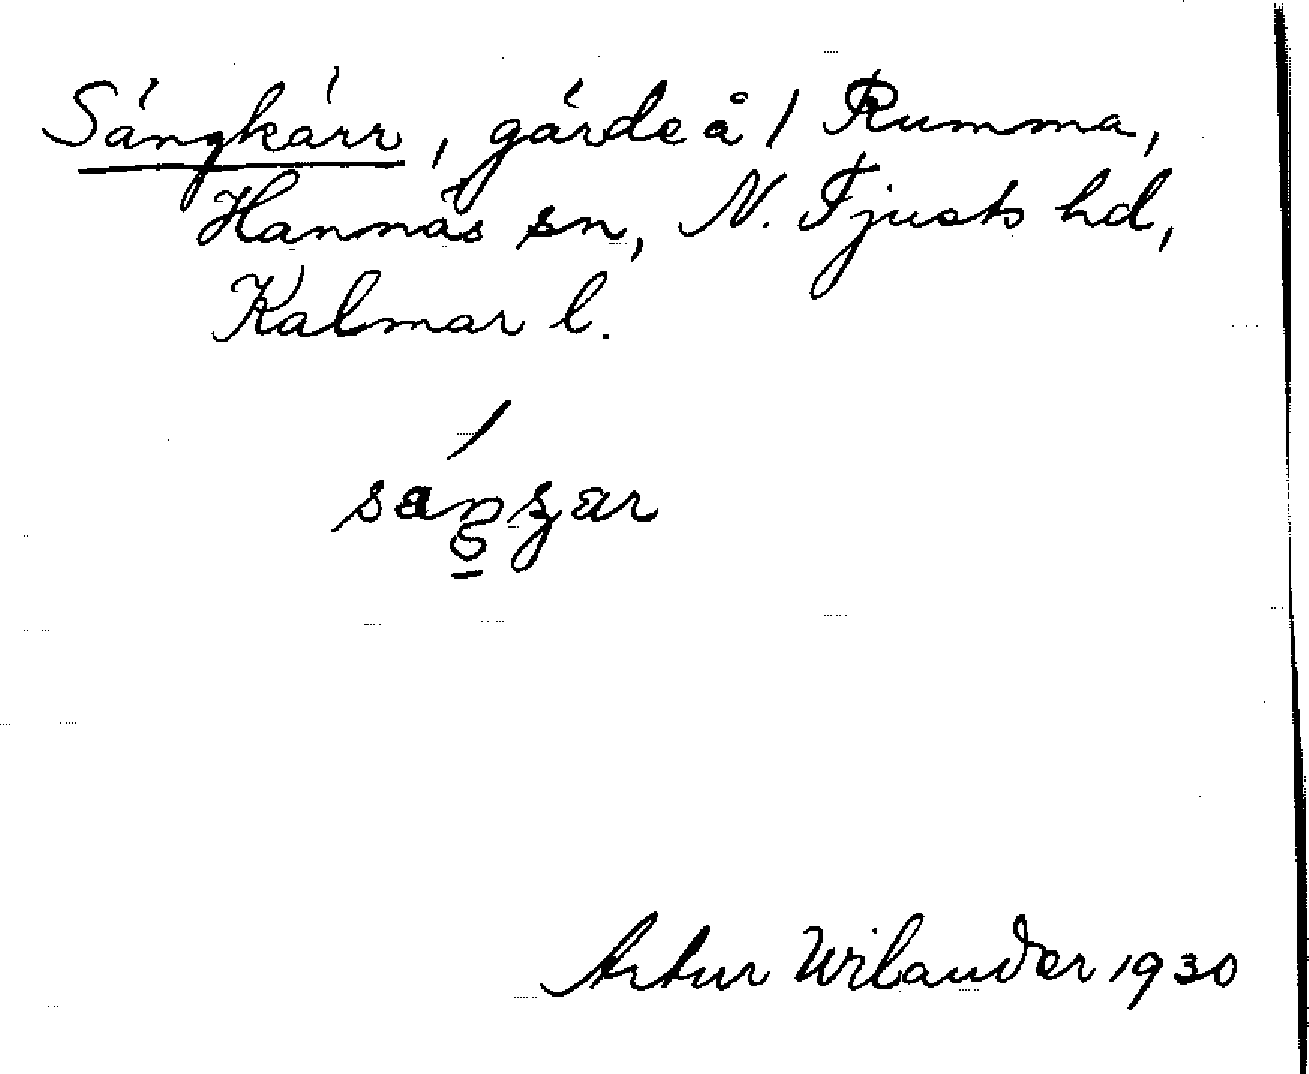 Sángkárr, gárde å / Rumma,
Hannás sn, N. Tjusts hd,
Kalmar l.
Artur Wilander 1930